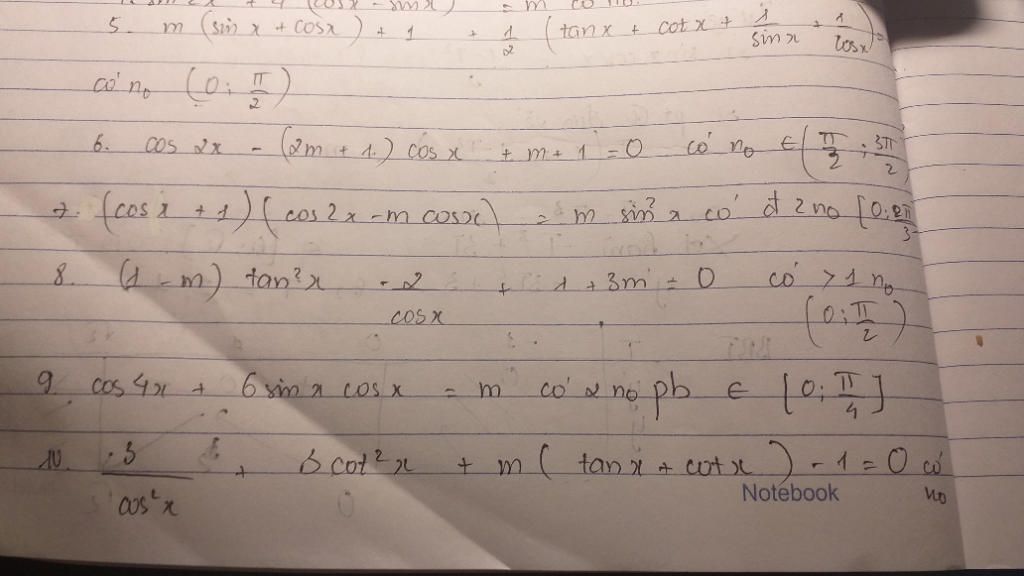 = m có no
5. m (sin x + cosx) + 1 + 1/2 (tanx + cotx + 1/sinx + 1/cosx) =
có no (0; π/2)
6. cos 2x - (2m + 1) cos x + m + 1 = 0 có no ∈ (π/2; 3π/2)
7. (cosx + 1)(cos2x - m cosx) = m sin²x có đ 2 no [0; 2π/3
8. (1 - m) tan²x - 2/cosx + 1 + 3m = 0 có > 1 no
(0; π/2)
9. cos4x + 6 sin x cosx = m có 2 no pb ∈ [0; π/4]
10. 3/cos²x + 3 cot²x + m (tanx + cotx) - 1 = 0 có
no
Notebook